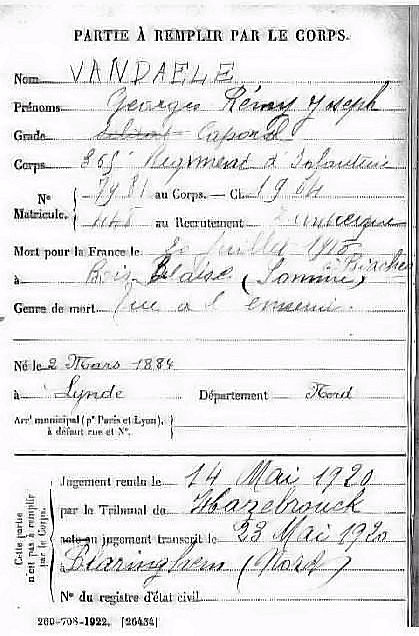 PARTIE À REMPLIR PAR LE CORPS.
Nom VANDAELE
Prénoms Georges Rémy Joseph
Grade Caporal
Corps 365e Régiment d'Infanterie
N° 7981 au Corps. — Cl. 1904
Matricule. 448 au Recrutement Dunkerque
Mort pour la France le 30 Juillet 1916
à Bois Blaise (Somme) à Biaches
Genre de mort Tué à l'ennemi
Né le 2 Mars 1884
à Lynde Département Nord
Arrt municipal (pr Paris et Lyon), à défaut rue et N°.
Cette partie n'est pas à remplir par le Corps.
Jugement rendu le 14 Mai 1920
par le Tribunal de Hazebrouck
acte ou jugement transcrit le 23 Mai 1920
à Blaringhem (Nord)
N° du registre d'état civil
260-708-1922. [26434]